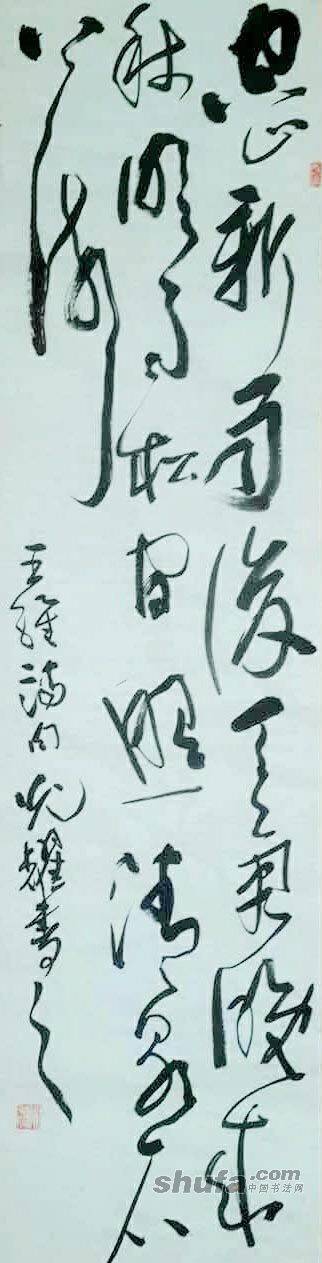 空山新雨后天气晚来
秋明月松间照清泉石
上流
王维诗句光耀书之
shufa.com
中国书法网